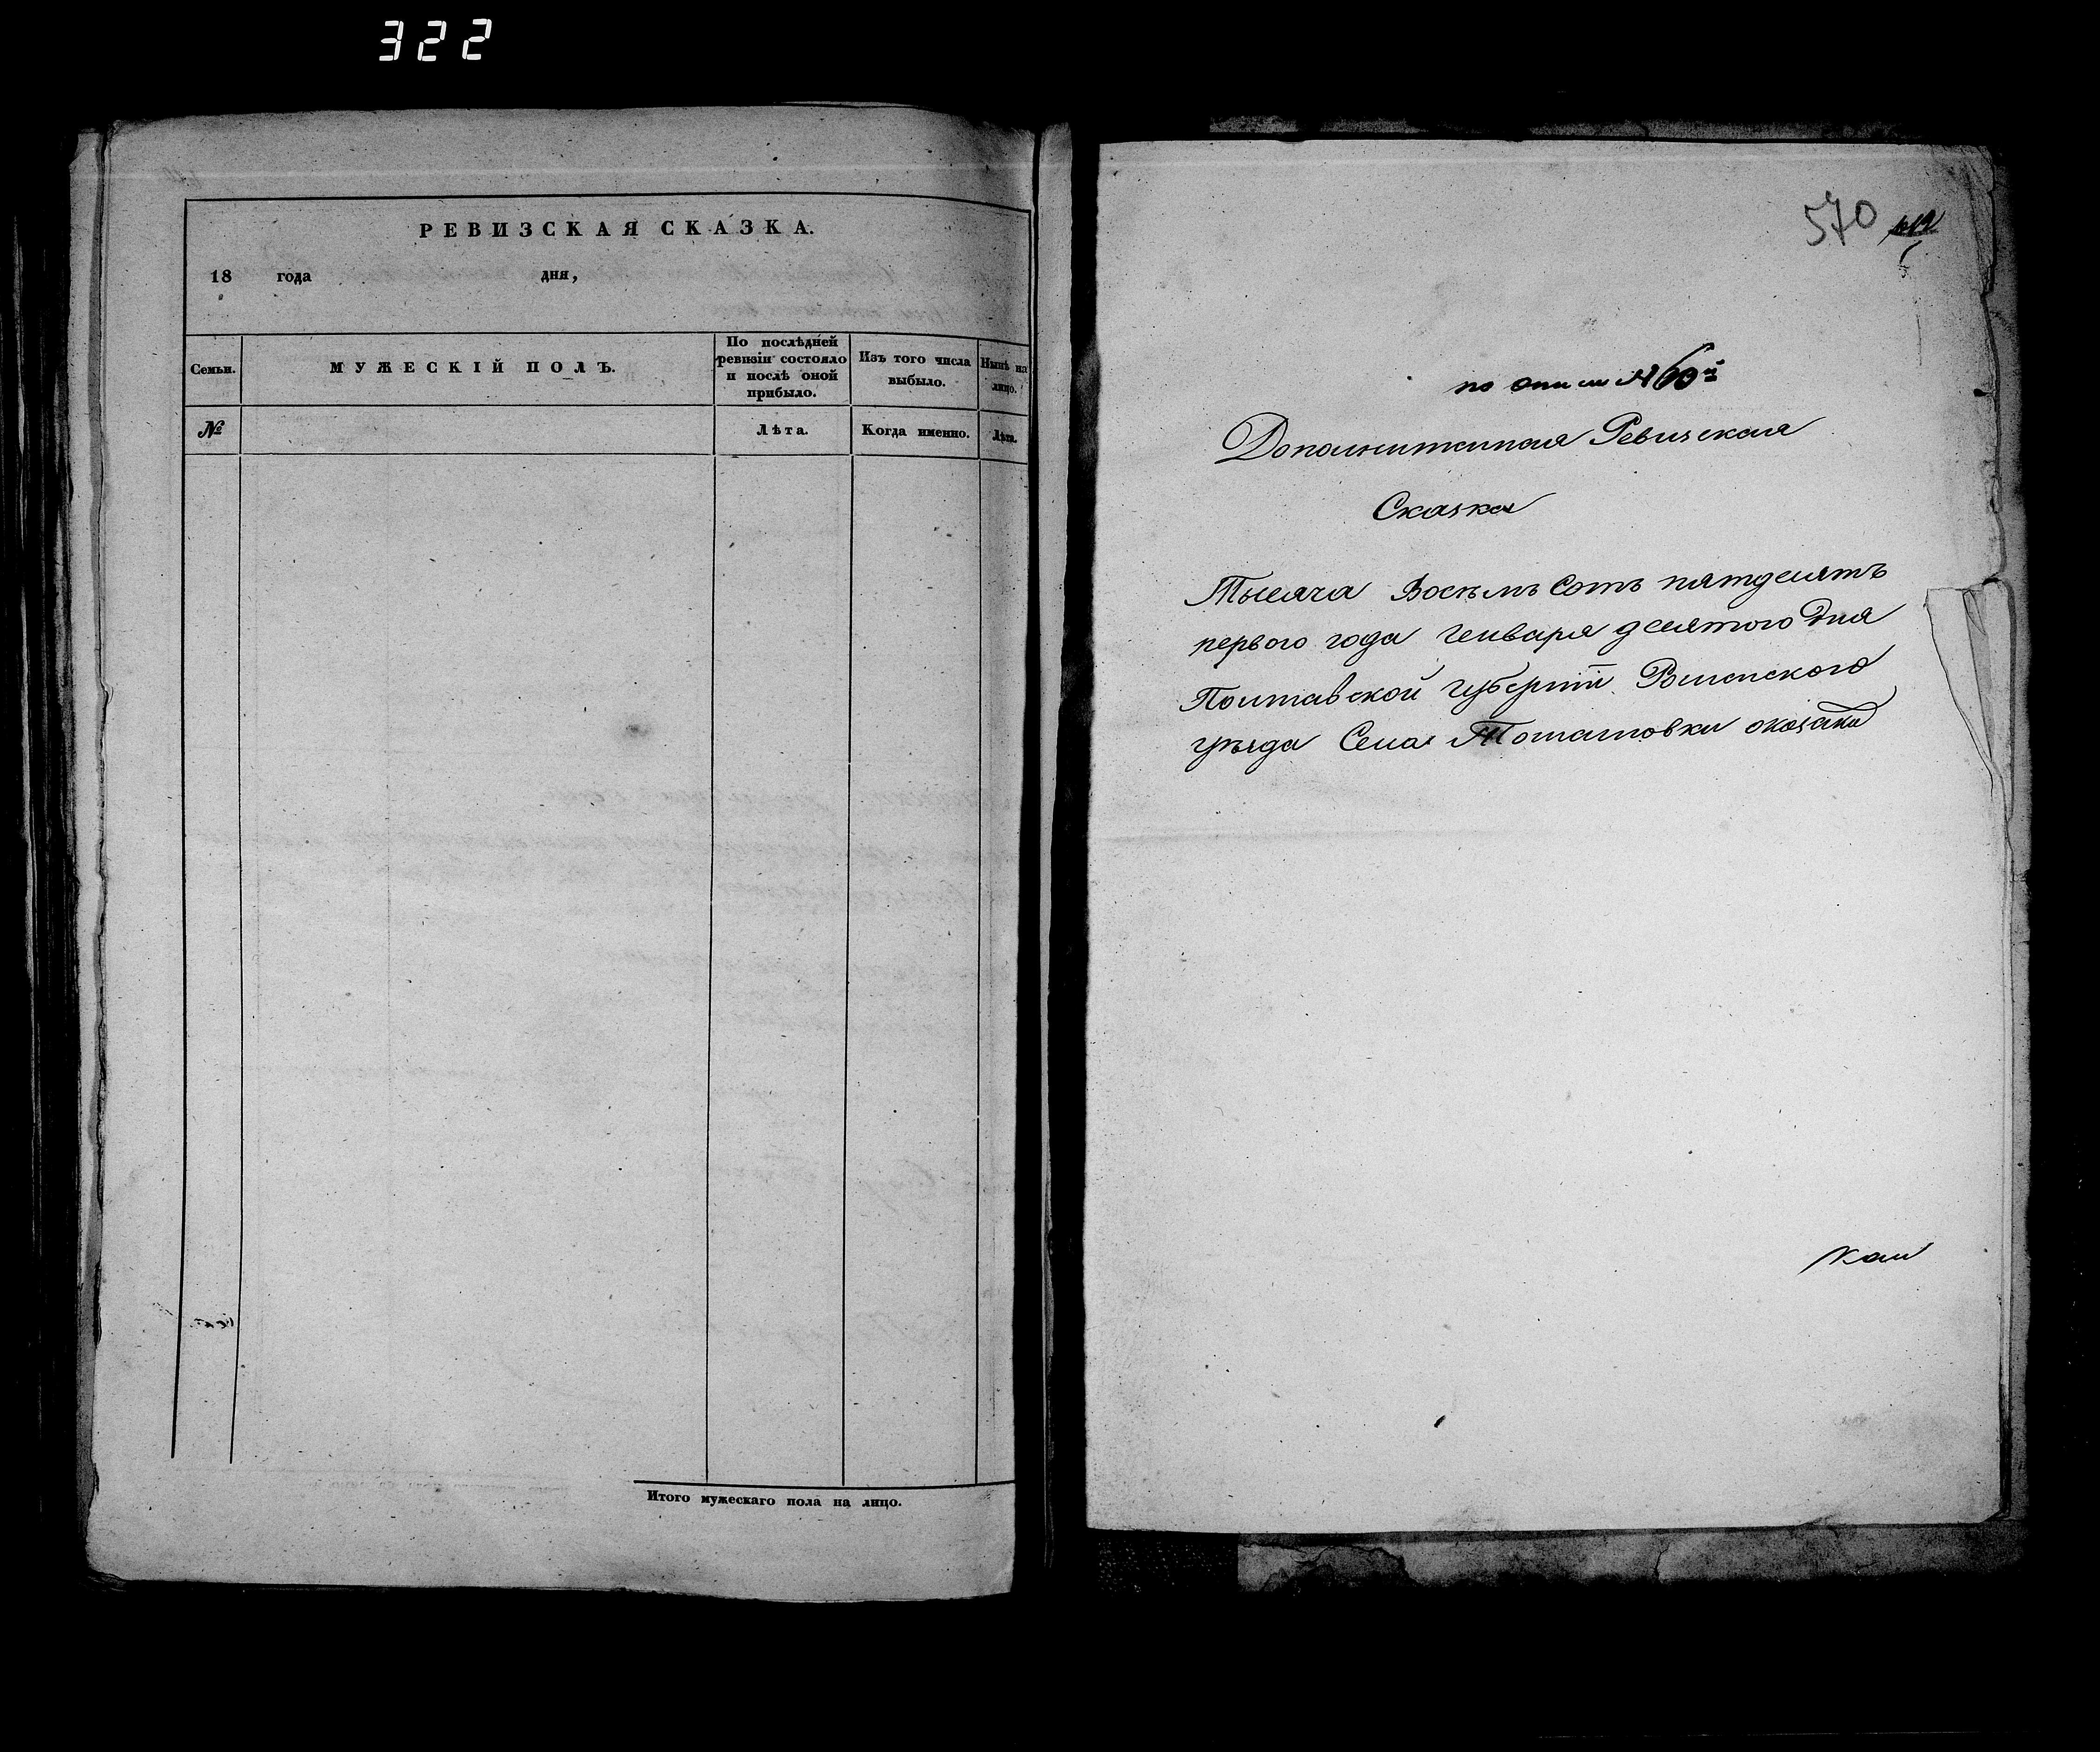 322
РЕВИЗСКАЯ СКАЗКА.
18 года дня,
Семьи.
МУЖЕСКІЙ ПОЛЪ.
По послѣдней ревизіи состояло и послѣ оной прибыло.
Изъ того числа выбыло.
Нынѣ на лицо.
№
Лѣта.
Когда именно.
Лѣта.
Итого мужескаго пола на лицо.
570
по описи № 60й
Дополнительная Ревизская
Сказка
Тысяча Восемь Сотъ пятдесятъ
первого года Генваря десятого Дня
Полтавской губерніи
уѣзда Села оказака